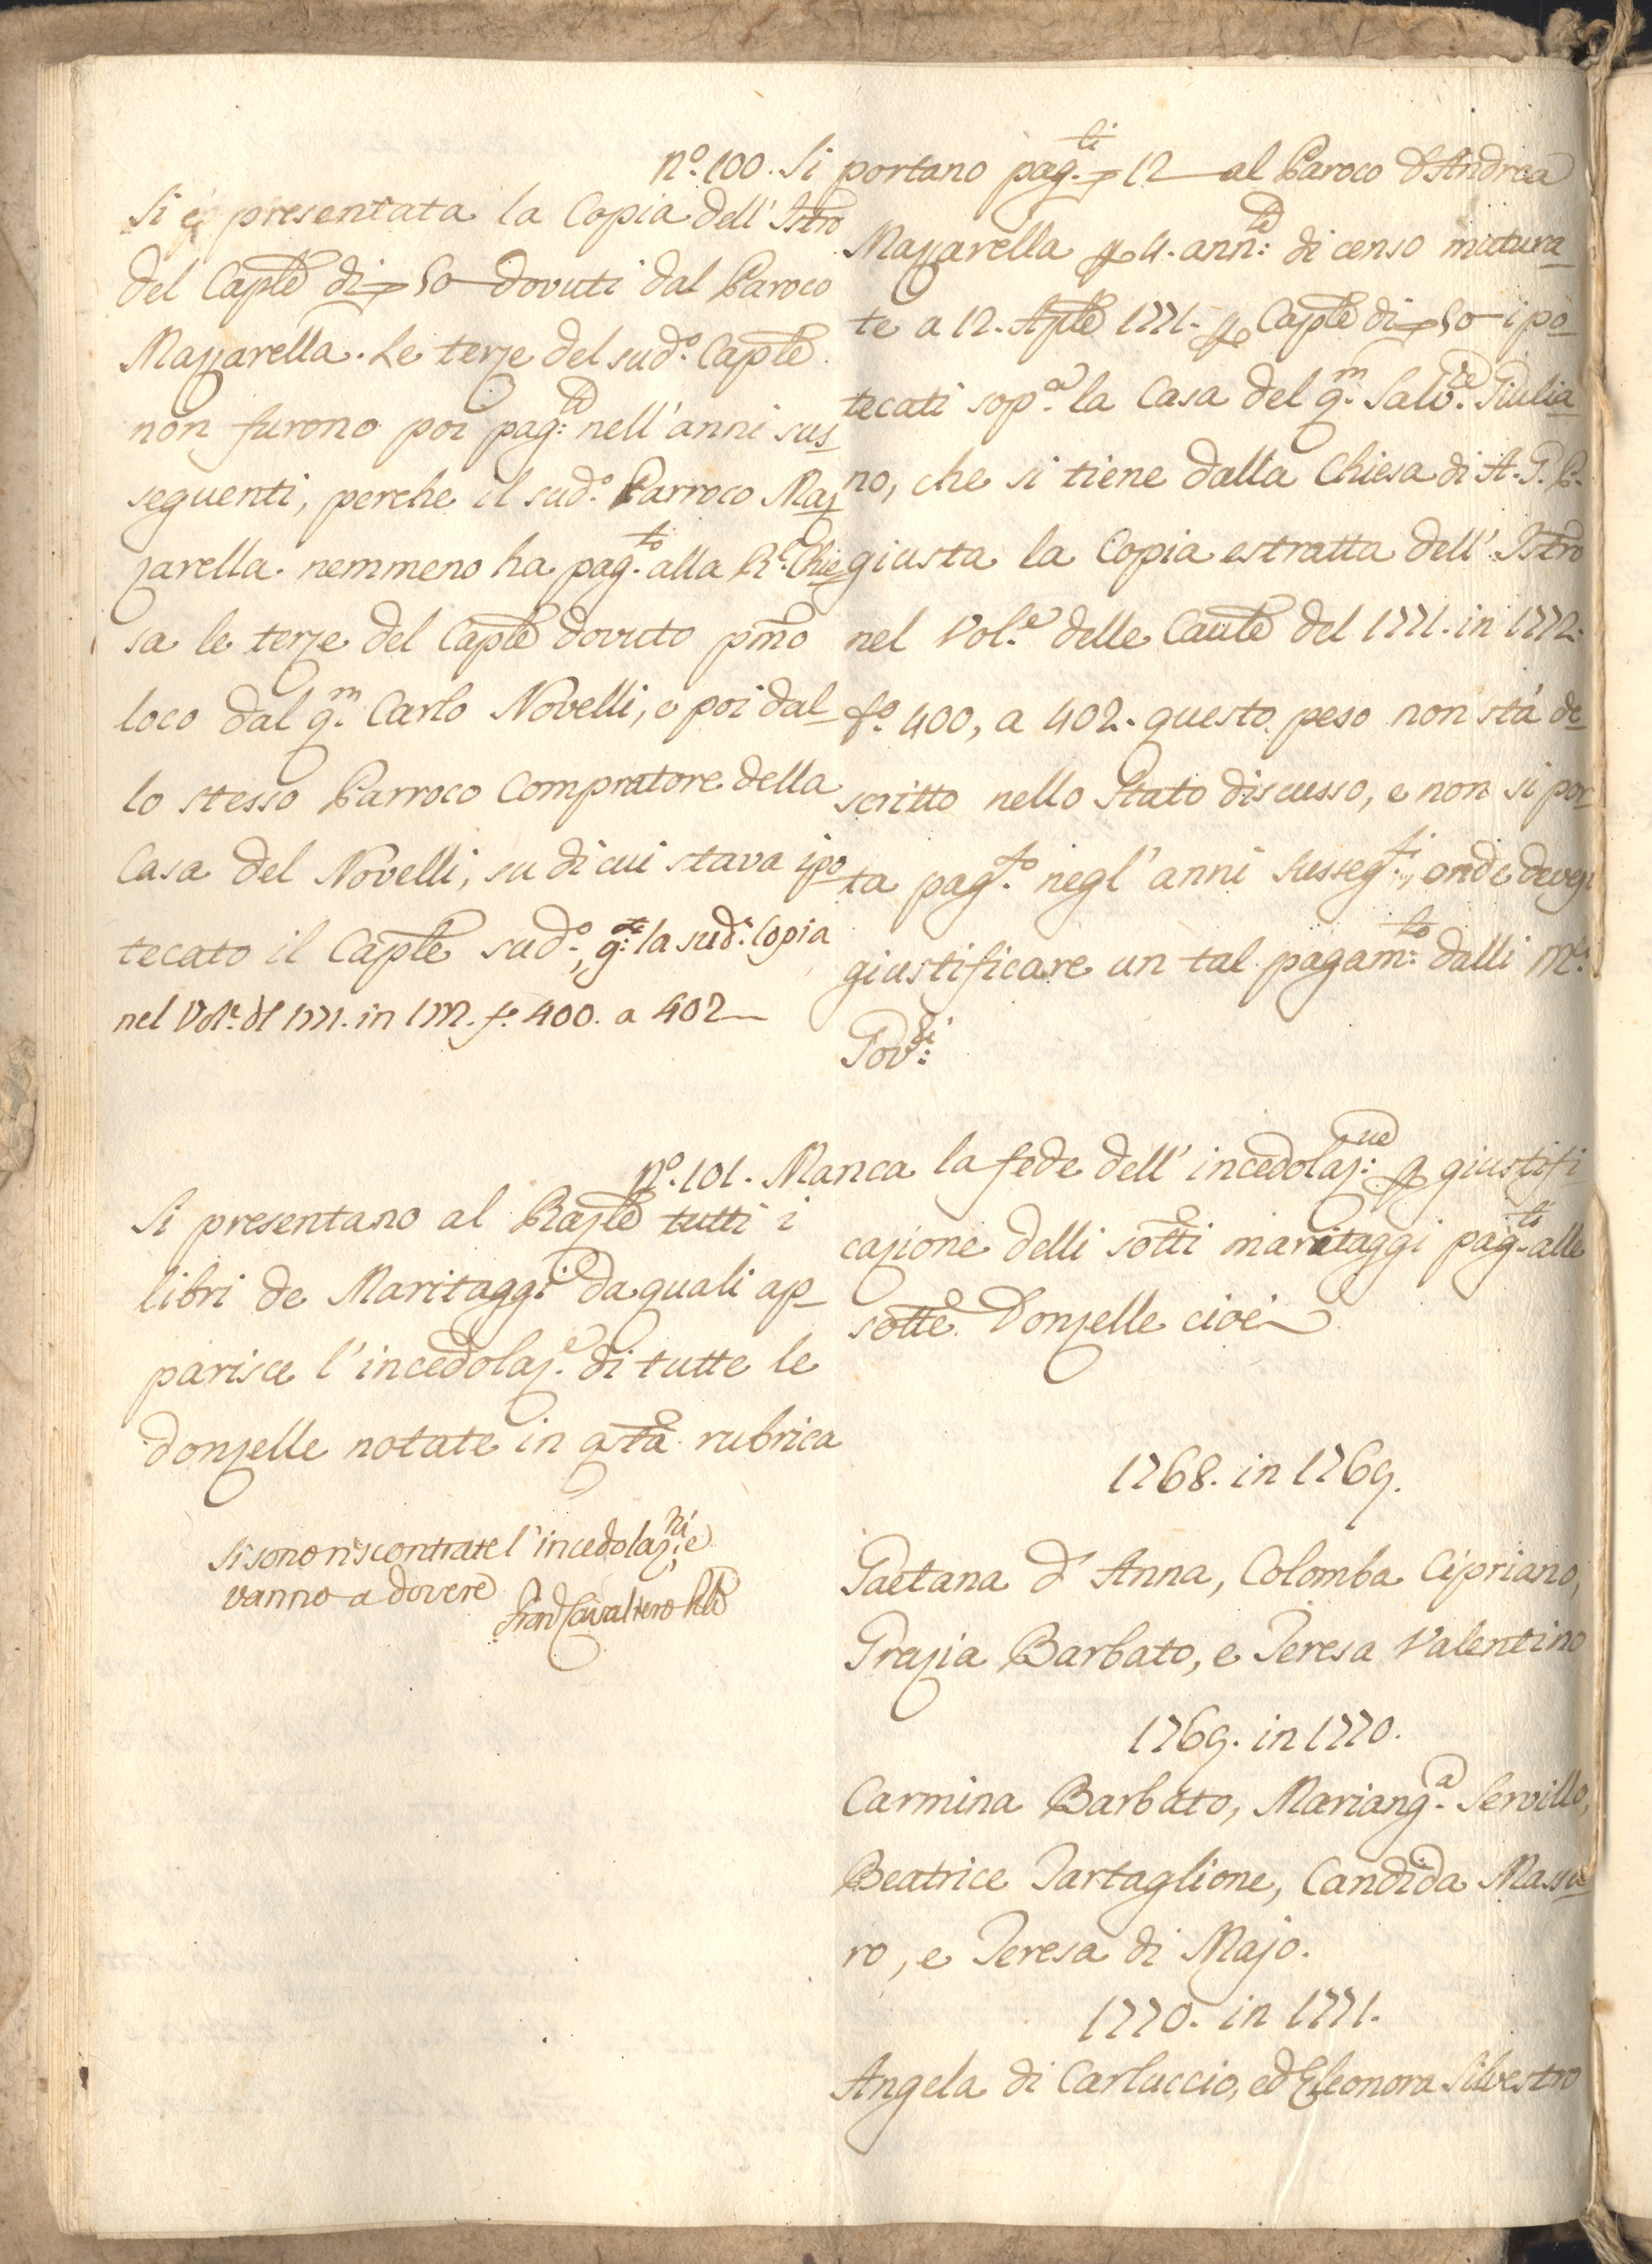 nº. 100. Si portano pag.ti 12 al Paroco D Andrea
Mazzarella p 4. ann.tà: di censo matura-
te a 12. Aple 1771. p Caple di 50 ipo-
tecati sop.a la Casa del q.m Salv.re Giulia-
no, che si tiene dalla Chiesa di A. G. P.
giusta la Copia estratta dell' Istro
nel Vol.e delle Caute del 1771. in 1772.
fº. 400, a 402. questo peso non stà de-
scritto nello Stato discusso, e non si por-
ta pag.to negl' anni susseg.ti, onde devesi
giustificare un tal pagam:to dalli M.ci
Gov:ri
Si è presentata la Copia dell' Istro
del Caple di 50 dovuti dal Paroco
Mazzarella. Le terze del sud.º Caple
non furono poi pag:te nell' anni sus-
seguenti, perche il sud.º Parroco Maz-
zarella nemmeno ha pag.to alla R.l Chie-
sa le terze del Caple dovuto pmo
loco dal q.m Carlo Novelli, e poi dal-
lo stesso Parroco Compratore della
Casa del Novelli, su di cui stava ipo-
tecato il Caple sud.º, g:te la sud.a Copia
nel Vol.e dl 1771. in 1772. fº 400. a 402
nº. 101. Manca la fede dell' incedolaz:ne p giustifi
cazione delli sotti maritaggi pag.ti alle
sotte Donzelle cioè
1768. in 1769.
Gaetana d' Anna, Colomba Cipriano,
Grazia Barbato, e Teresa Valentino
1769. in 1770.
Carmina Barbato, Mariang.a Servillo,
Beatrice Tartaglione, Candida Massa-
ro, e Teresa di Majo.
1770. in 1771.
Angela di Carluccio, ed Eleonora Silvestro
Si presentano al Razle tutti i
libri de Maritaggi da quali ap-
parisce l' incedolaz.e di tutte le
donzelle notate in qsta rubrica
Si sono riscontrate l' incedolaz:ni, e
vanno a dovere
Fran.co Cavaliero